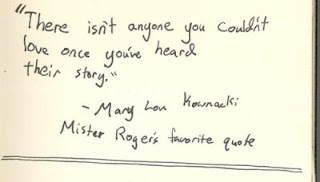 "There isn't anyone you couldn't
love once you've heard
their story."
- Mary Lou Kownacki
Mister Roger's favorite quote